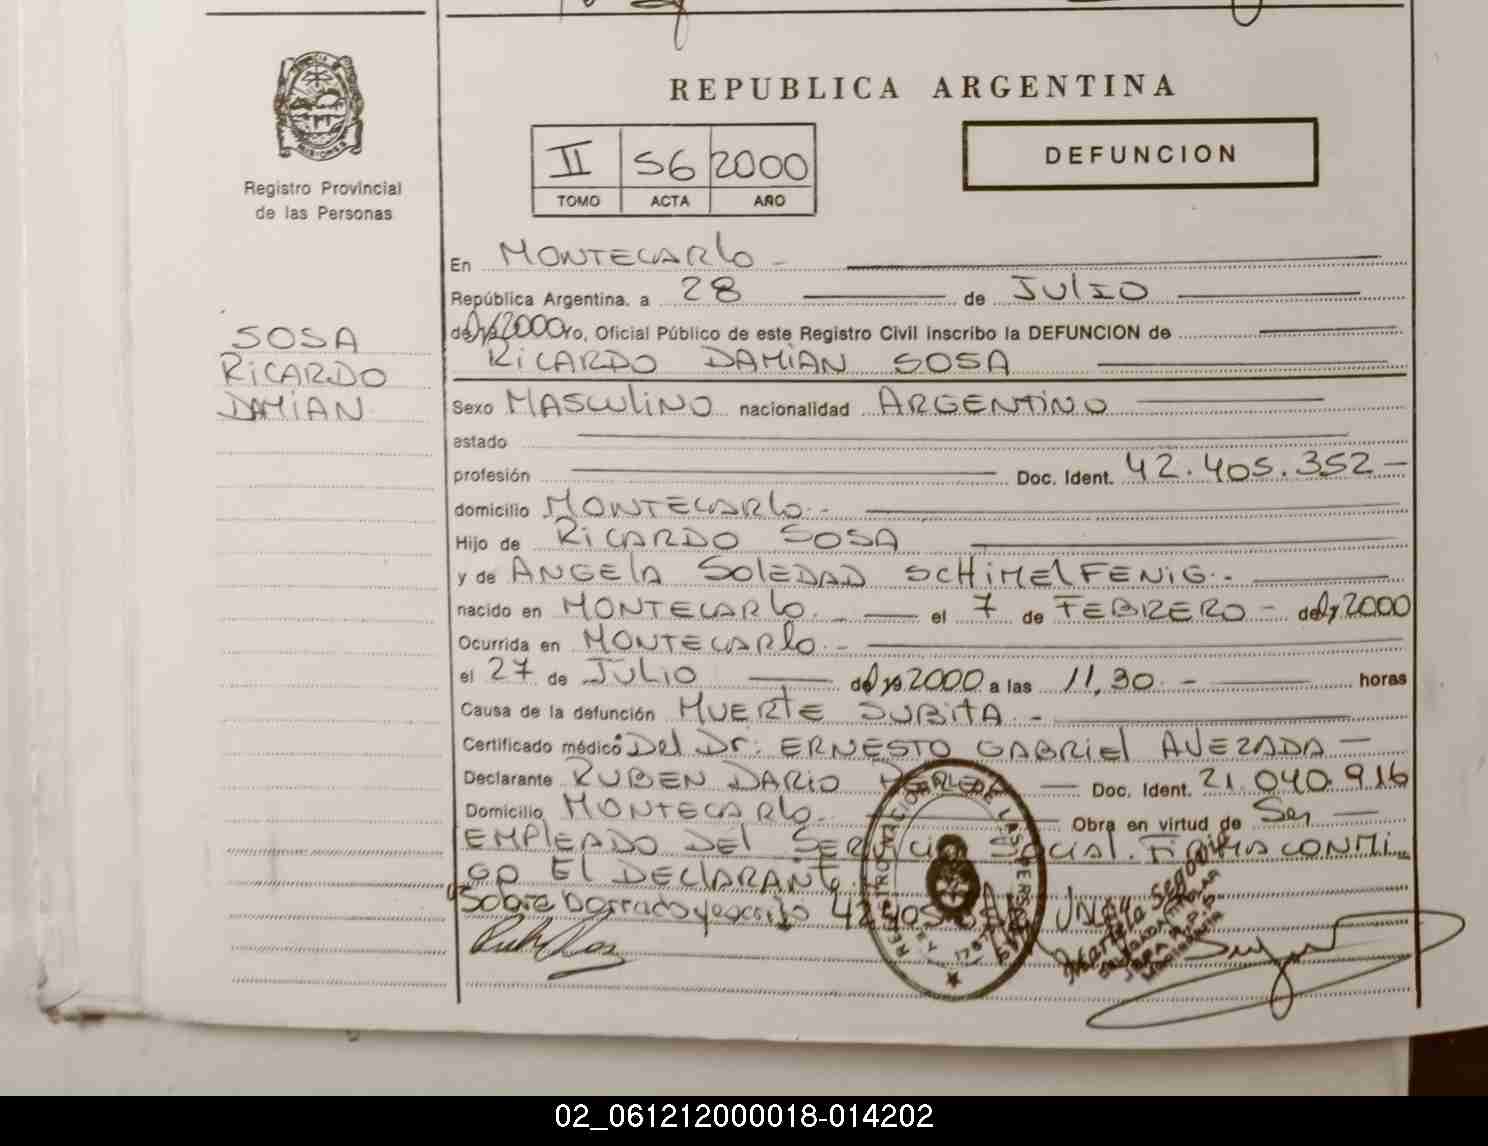 REPUBLICA ARGENTINA
DEFUNCION
II 56 2000
TOMO ACTA AÑO
Registro Provincial
de las Personas
SOSA
RICARDO
DAMIAN
En MONTECARLO -
República Argentina, a 28 de JULIO
de 2000 Yo, Oficial Público de este Registro Civil inscribo la DEFUNCION de
RICARDO DAMIAN SOSA
Sexo MASCULINO nacionalidad ARGENTINO
estado
profesión Doc. Ident. 42.405.352-
domicilio MONTECARLO.-
Hijo de RICARDO SOSA
y de ANGELA SOLEDAD SCHIMELFENIG.-
nacido en MONTECARLO. - el 7 de FEBRERO - de 2000
Ocurrida en MONTECARLO.-
el 27 de JULIO de 2000 a las 11,30 - horas
Causa de la defunción MUERTE SUBITA.-
Certificado médico Del Dr: ERNESTO GABRIEL AVEZADA -
Declarante RUBEN DARIO Doc. Ident. 21.040.916
Domicilio MONTECARLO. Obra en virtud de Ser
EMPLEADO DEL SERVICIO SOCIAL. FIRMA CONMI
GO EL DECLARANTE.
Sobre borrado y escrito
REGISTRO PROVINCIAL DE LAS PERSONAS
02_061212000018-014202